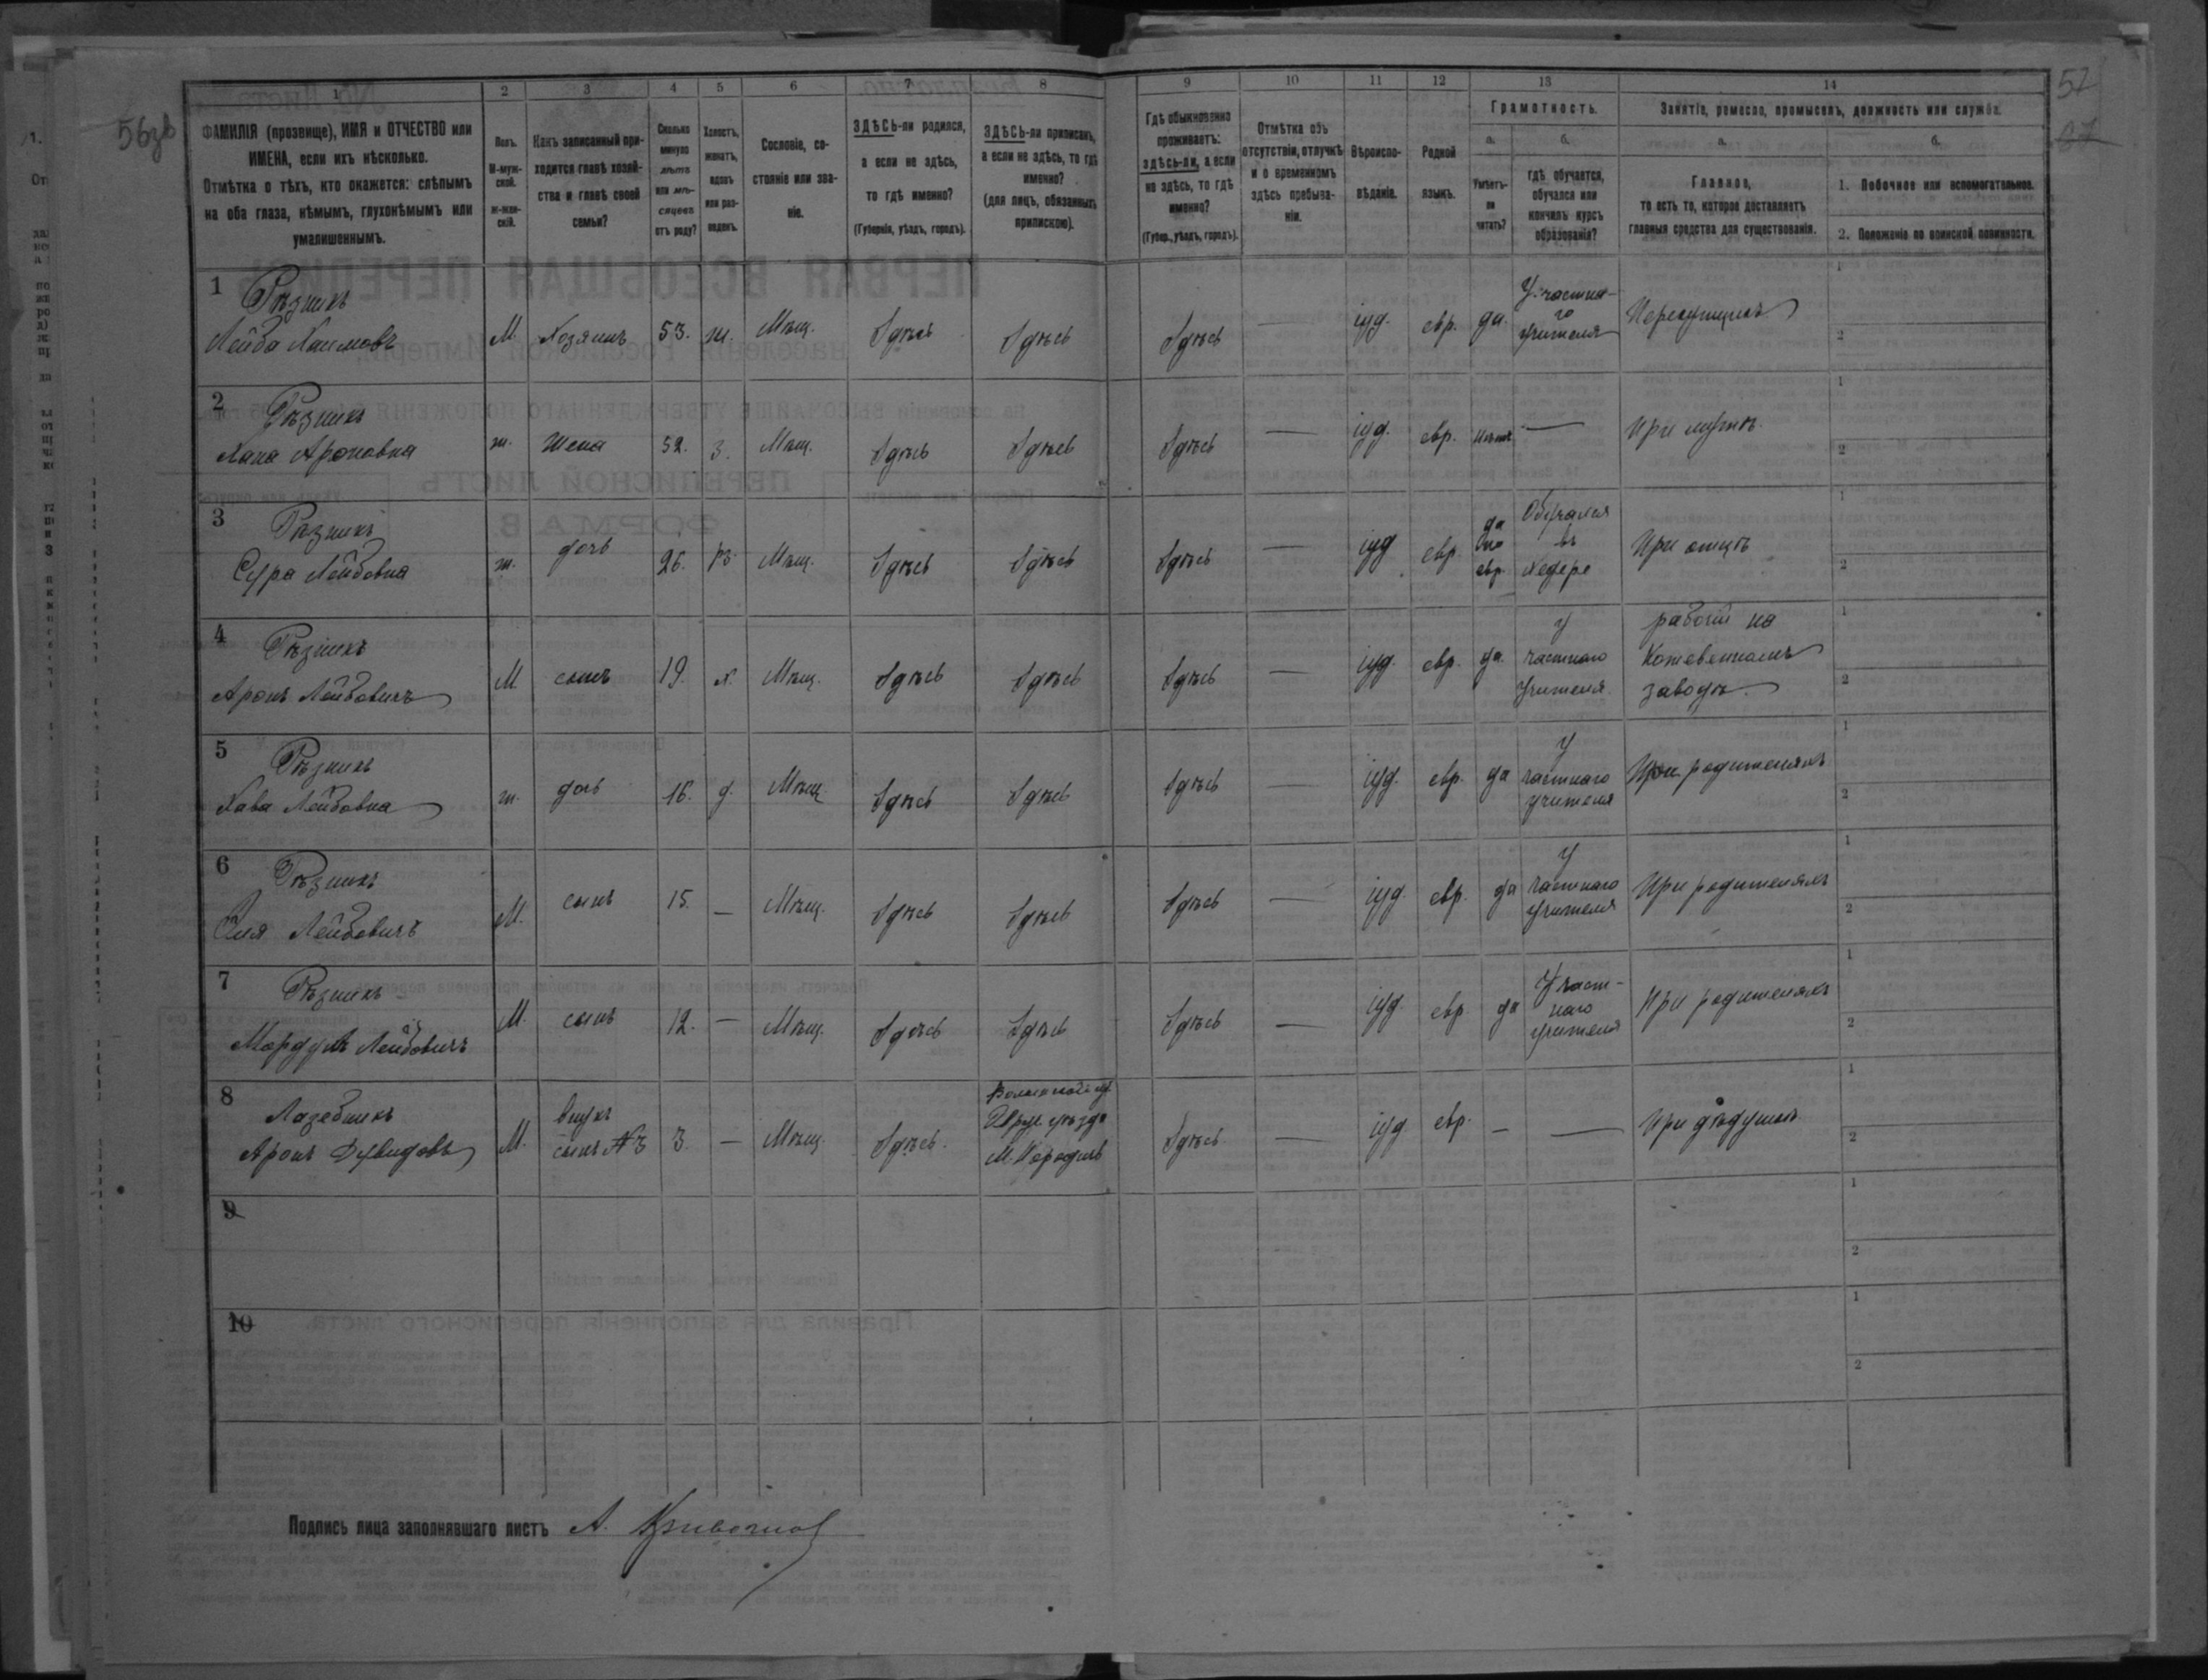 56зв
57
87
1 2 3 4 5 6 7 8 9 10 11 12 13 14
ФАМИЛІЯ (прозвище), ИМЯ и ОТЧЕСТВО или
ИМЕНА, если ихъ нѣсколько.
Отмѣтка о тѣхъ, кто окажется: слѣпымъ
на оба глаза, нѣмымъ, глухонѣмымъ или
умалишеннымъ.
Полъ.
М-муж-
ской.
ж-жен-
скій.
Какъ записанный при-
ходится главѣ хозяй-
ства и главѣ своей
семьи?
Сколько
минуло
лѣтъ
или мѣ-
сяцевъ
отъ роду?
Холостъ,
женатъ,
вдовъ
или раз-
веденъ.
Сословіе, со-
стояніе или зва-
ніе.
ЗДѢСЬ-ли родился,
а если не здѣсь,
то гдѣ именно?
(Губернія, уѣздъ, городъ).
ЗДѢСЬ-ли приписанъ,
а если не здѣсь, то гдѣ
именно?
(для лицъ, обязанныхъ
припискою).
Гдѣ обыкновенно
проживаетъ:
здѣсь-ли, а если
не здѣсь, то гдѣ
именно?
(Губер., уѣздъ, городъ).
Отмѣтка объ
отсутствіи, отлучкѣ
и о временномъ
здѣсь пребыва-
ніи.
Вѣроиспо-
вѣданіе.
Родной
языкъ.
Грамотность.
а.
Умѣетъ-
ли
читать?
б.
гдѣ обучается,
обучался или
кончилъ курсъ
образованія?
Занятіе, ремесло, промыселъ, должность или служба.
а.
Главное,
то есть то, которое доставляетъ
главныя средства для существованія.
б.
1. Побочное или вспомогательное.
2. Положеніе по воинской повинности.
1 Рѣзникъ
Лейба Хаимовъ М. Хозяинъ 53. ж. Мѣщ. Здѣсь Здѣсь Здѣсь — іуд. евр. да.
У частна-
го
учителя
Перекупщикъ
1
2
2 Рѣзникъ
Хана Ароновна ж. Жена 52. з. Мѣщ. Здѣсь Здѣсь Здѣсь — іуд. евр. Нѣтъ — При мужѣ.
1
2
3 Рѣзникъ
Сура Лейбовна ж. дочь 26. рз. Мѣщ. Здѣсь Здѣсь Здѣсь — іуд евр.
да
по
евр.
Обучался
въ
Хедере
При отцѣ
1
2
4 Рѣзникъ
Аронъ Лейбовичъ М сынъ 19. х. Мѣщ. Здѣсь Здѣсь Здѣсь — іуд. евр. да.
У
частнаго
учителя.
рабочій на
Кожевенномъ
заводѣ.
1
2
5 Рѣзникъ
Хава Лейбовна ж. дочь 16. д. Мѣщ. Здѣсь Здѣсь Здѣсь — іуд. евр. да
У
частнаго
учителя
При родителяхъ
1
2
6 Рѣзникъ
Эля Лейбовичъ М. сынъ 15. — Мѣщ. Здѣсь Здѣсь Здѣсь — іуд. евр. да
У
частнаго
учителя
При родителяхъ
1
2
7 Рѣзникъ
Мордухъ Лейбовичъ М. сынъ 12. — Мѣщ. Здѣсь Здѣсь Здѣсь — іуд евр. да
У част-
наго
учителя
При родителяхъ
1
2
8 Лазебникъ
Аронъ Дувидовъ М.
внукъ
сынъ №3
3. — Мѣщ. Здѣсь.
Волынской губ.
Овруч. уѣзда
М. Народичъ
Здѣсь — іуд евр. — — При дѣдушкѣ
1
2
9
1
2
10
1
2
Подпись лица заполнявшаго листъ